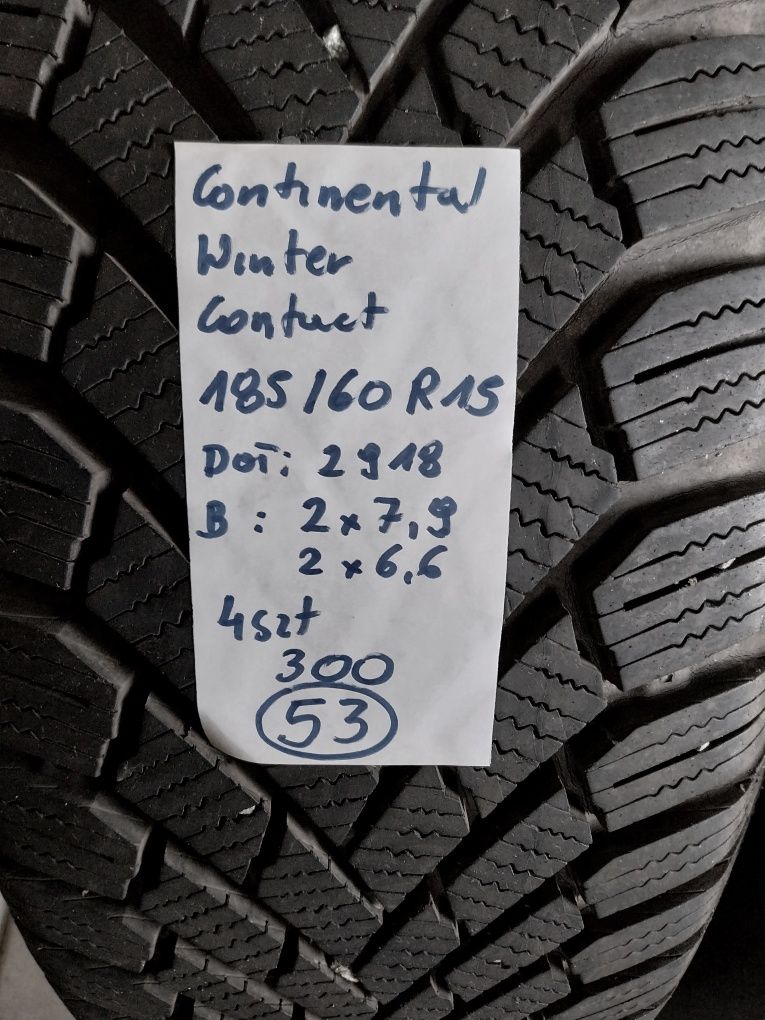 Continental
Winter
Contact
185/60 R15
DOT: 2918
B: 2x7,9
2x6,6
4szt
300
53